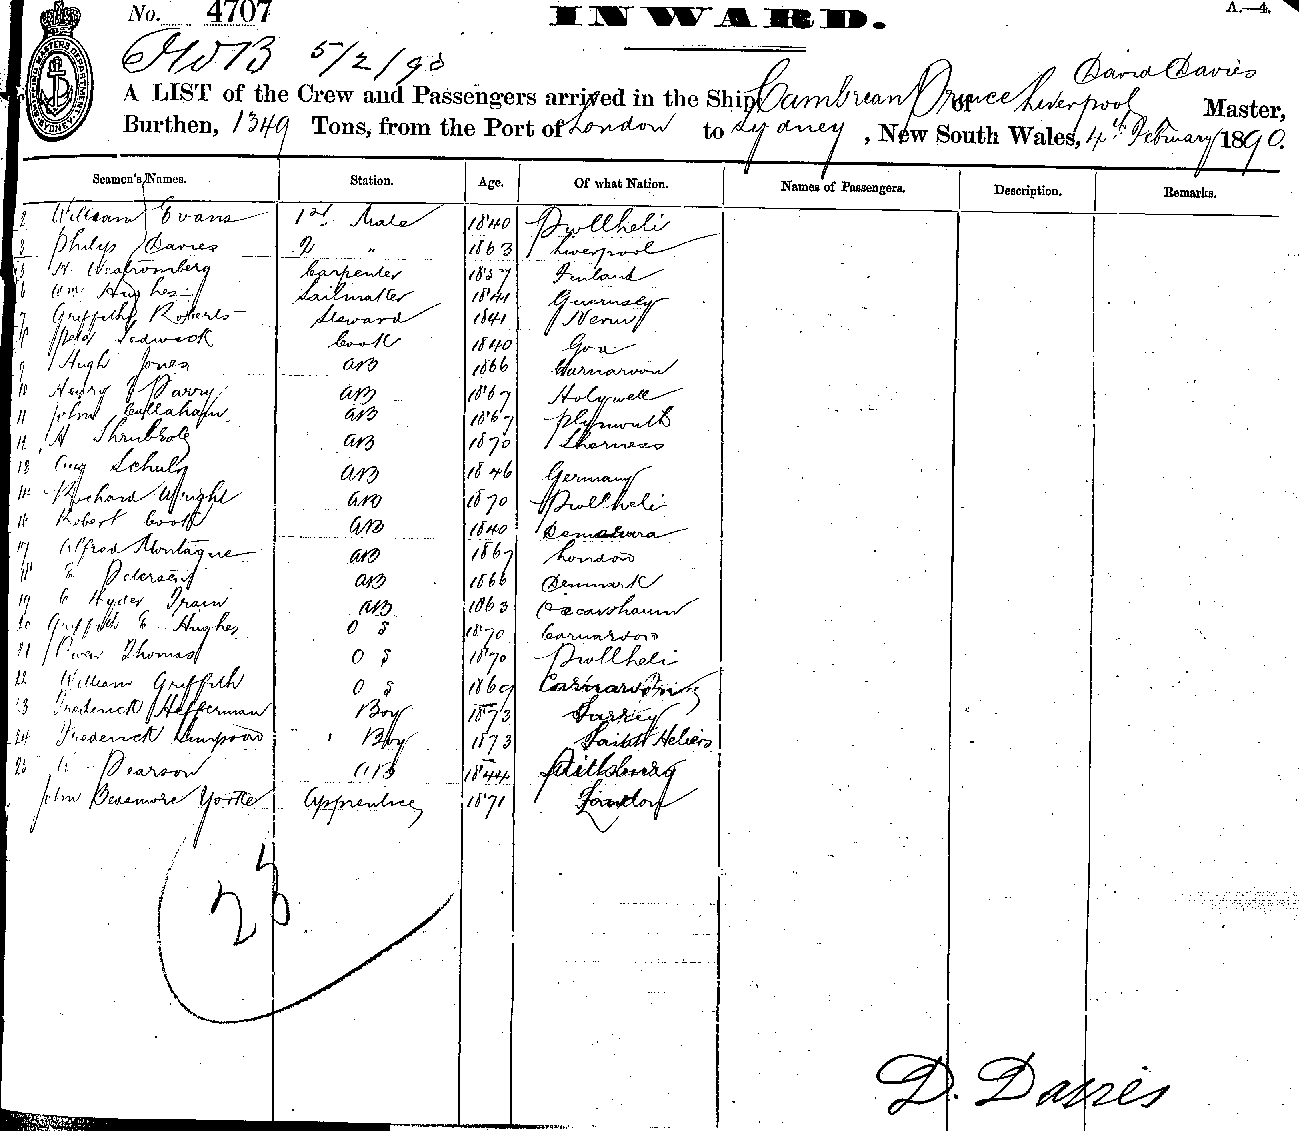 No. 4707 INWARD. A.—4.
5/2/90
David Davies
A LIST of the Crew and Passengers arrived in the Ship Cambrian Prince of Liverpool Master,
Burthen, 1349 Tons, from the Port of London to Sydney, New South Wales, 4th February 1890.
Seamen's Names. Station. Age. Of what Nation. Names of Passengers. Description. Remarks.
2 William Evans 1st Mate 1840 Pwllheli
3 Philip Davies 2 " 1863 Liverpool
5 Carpenter 1857 Finland
6 Wm Hughes Sailmaker 1841 Guernsey
7 Griffith Roberts Steward 1841 Nevin
Cook 1840 Goa
9 Hugh Jones AB 1866 Carnarvon
10 Henry Parry AB 1867 Holywell
11 John Callaham AB 1867 Plymouth
12 H Shrubsole AB 1870 Sherness
13 Aug Schulz AB 1846 Germany
Richard Wright AB 1870 Pwllheli
Robert Cook AB 1840 Demerara
17 Alfred Montague AB 1867 London
18 Petersen AB 1866 Denmark
19 C Hyder Train AB 1863
20 Griffith E Hughes OS 1870 Carnarvon
21 Owen Thomas OS 1870 Pwllheli
22 William Griffith OS 1869
23 Frederick Hefferman Boy 1873 Surrey
24 Frederick Boy 1873 Saint Heliers
25 Pearson AB 1844 Pittsburg
John Yorke Apprentice 1871 London
23
D. Davies